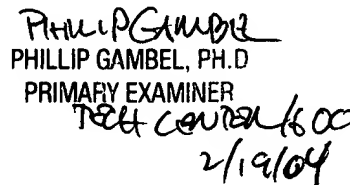 PHILLIP GAMBEL
PHILLIP GAMBEL, PH.D
PRIMARY EXAMINER
TECH CENTER 1600
2/19/04